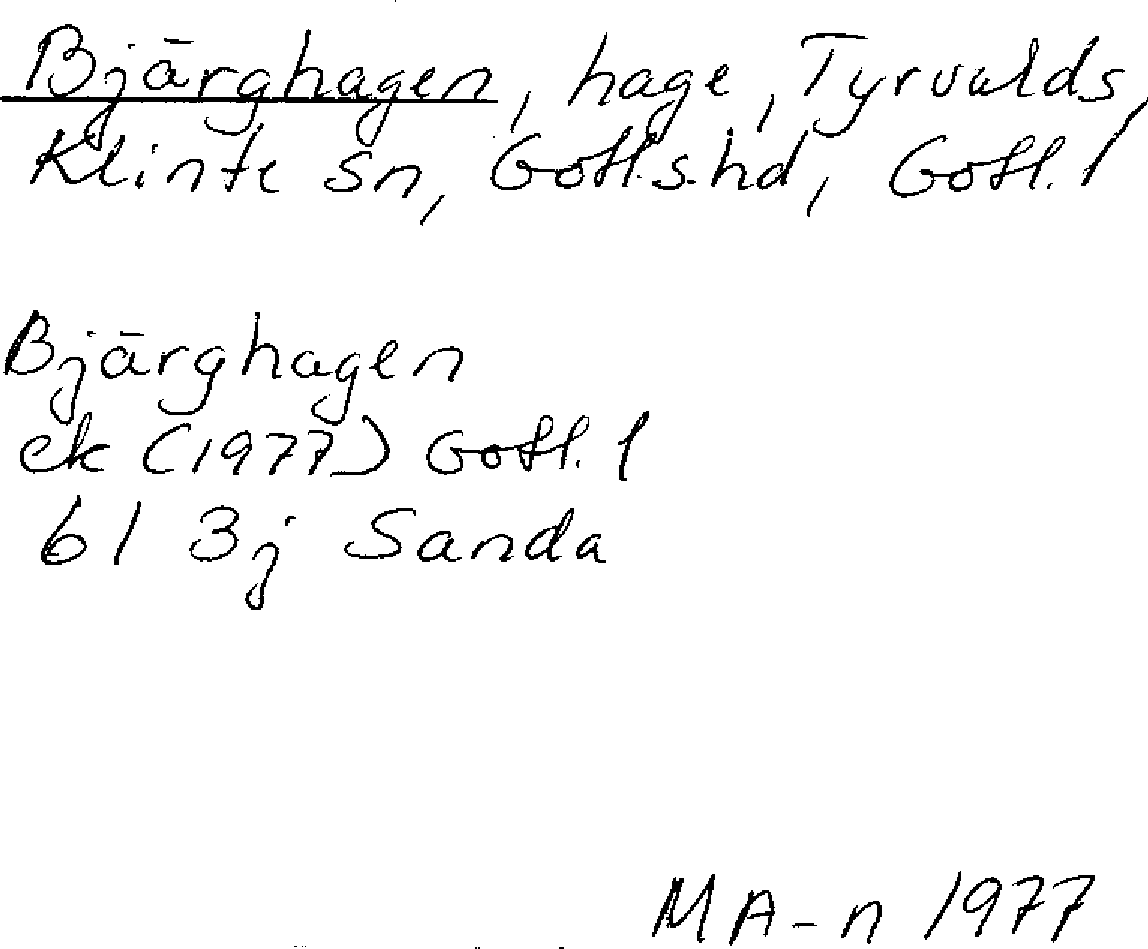 Bjärghagen, hage, Tyrvalds,
Klinte sn, Gotl.s.hd, Gotl. l
Bjärghagen
ek (1977) Gotl. l
6I 3j Sanda
MA-n 1977